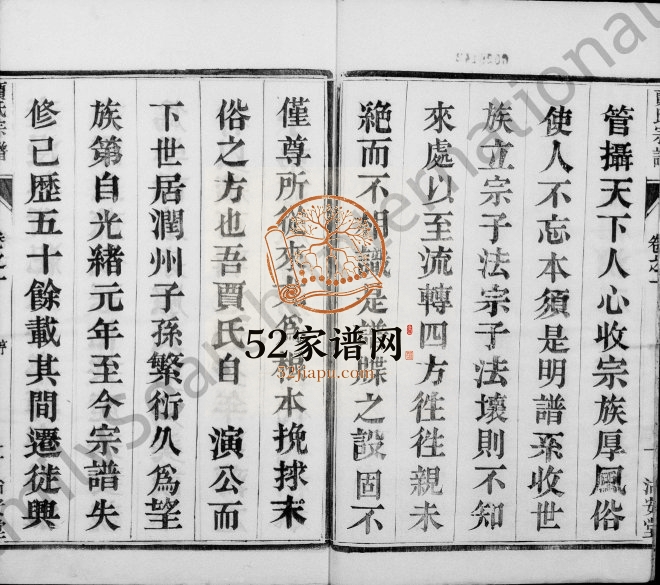 管攝天下人心收宗族厚風俗
使人不忘本須是明譜系收世
族立宗子法宗子法壞則不知
來處以至流轉四方徃徃親未
絕而不相識是譜牒之設固不
僅尊所從來 本挽捄末
俗之方也吾賈氏自 演公而
下世居潤州子孫繁衍久為望
族第自光緒元年至今宗譜失
修已歷五十餘載其間遷徙興
賈氏宗譜
卷之一
序
52家谱网
52jiapu.com
0029142